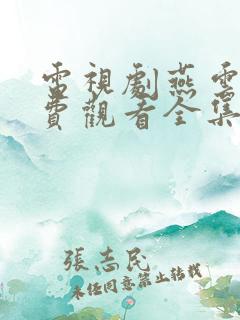 電視劇燕雲
費觀看全集
張志民
未经同意禁止转载